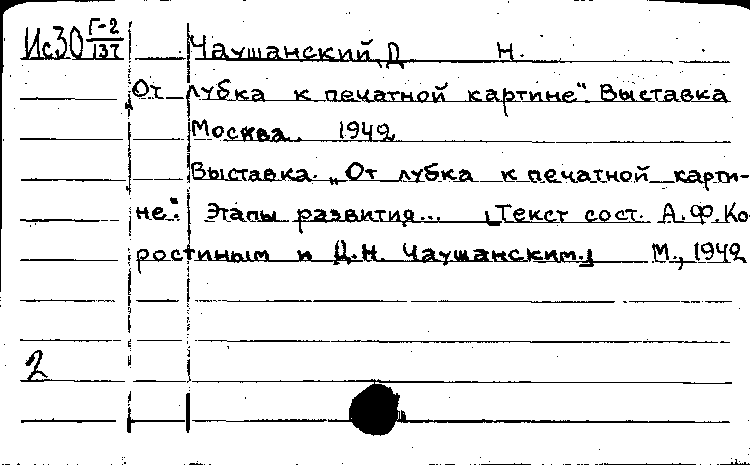 Ис30 Г-2/137 Чаушанский, Д Н.
От лубка к печатной картине". Выставка
Москва. 1942
Выставка. „От лубка к печатной карти-
не". Этапы развития... [Текст сост. А.Ф.Ко
ростиным и Д.Н. Чаушанским.] М., 1942
2